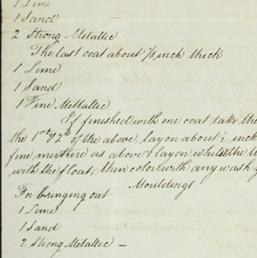 1 Lime
1 Sand
2 Strong Metallic
The last coat about ⅛ inch thick
1 Lime
1 Sand
1 Fine Mettallic
If finished with one coat take the
the 1st of the above, lay on about ½ inch
fine mixture as above & lay on, whilst the
with the float, then color with any wash
Mouldings
For bringing out
1 Lime
1 Sand
2 Strong Metallic —